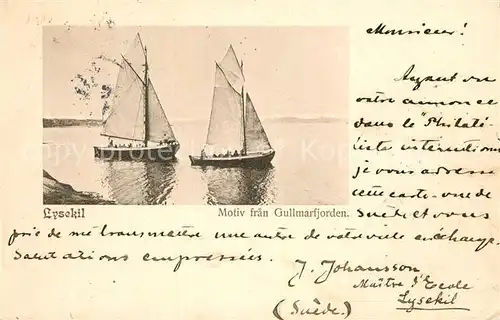 Monsieur!
Ayant vu
votre annonce
dans le "Philaté-
liste
je vous adresse
cette carte-vue de
Suède et vous
Lysekil
Motiv från Gullmarfjorden.
prie de me transmettre une autre de votre ville en échange.
Salutations empressées.
J. Johansson
Maître d'Ecole
Lysekil
(Suède.)